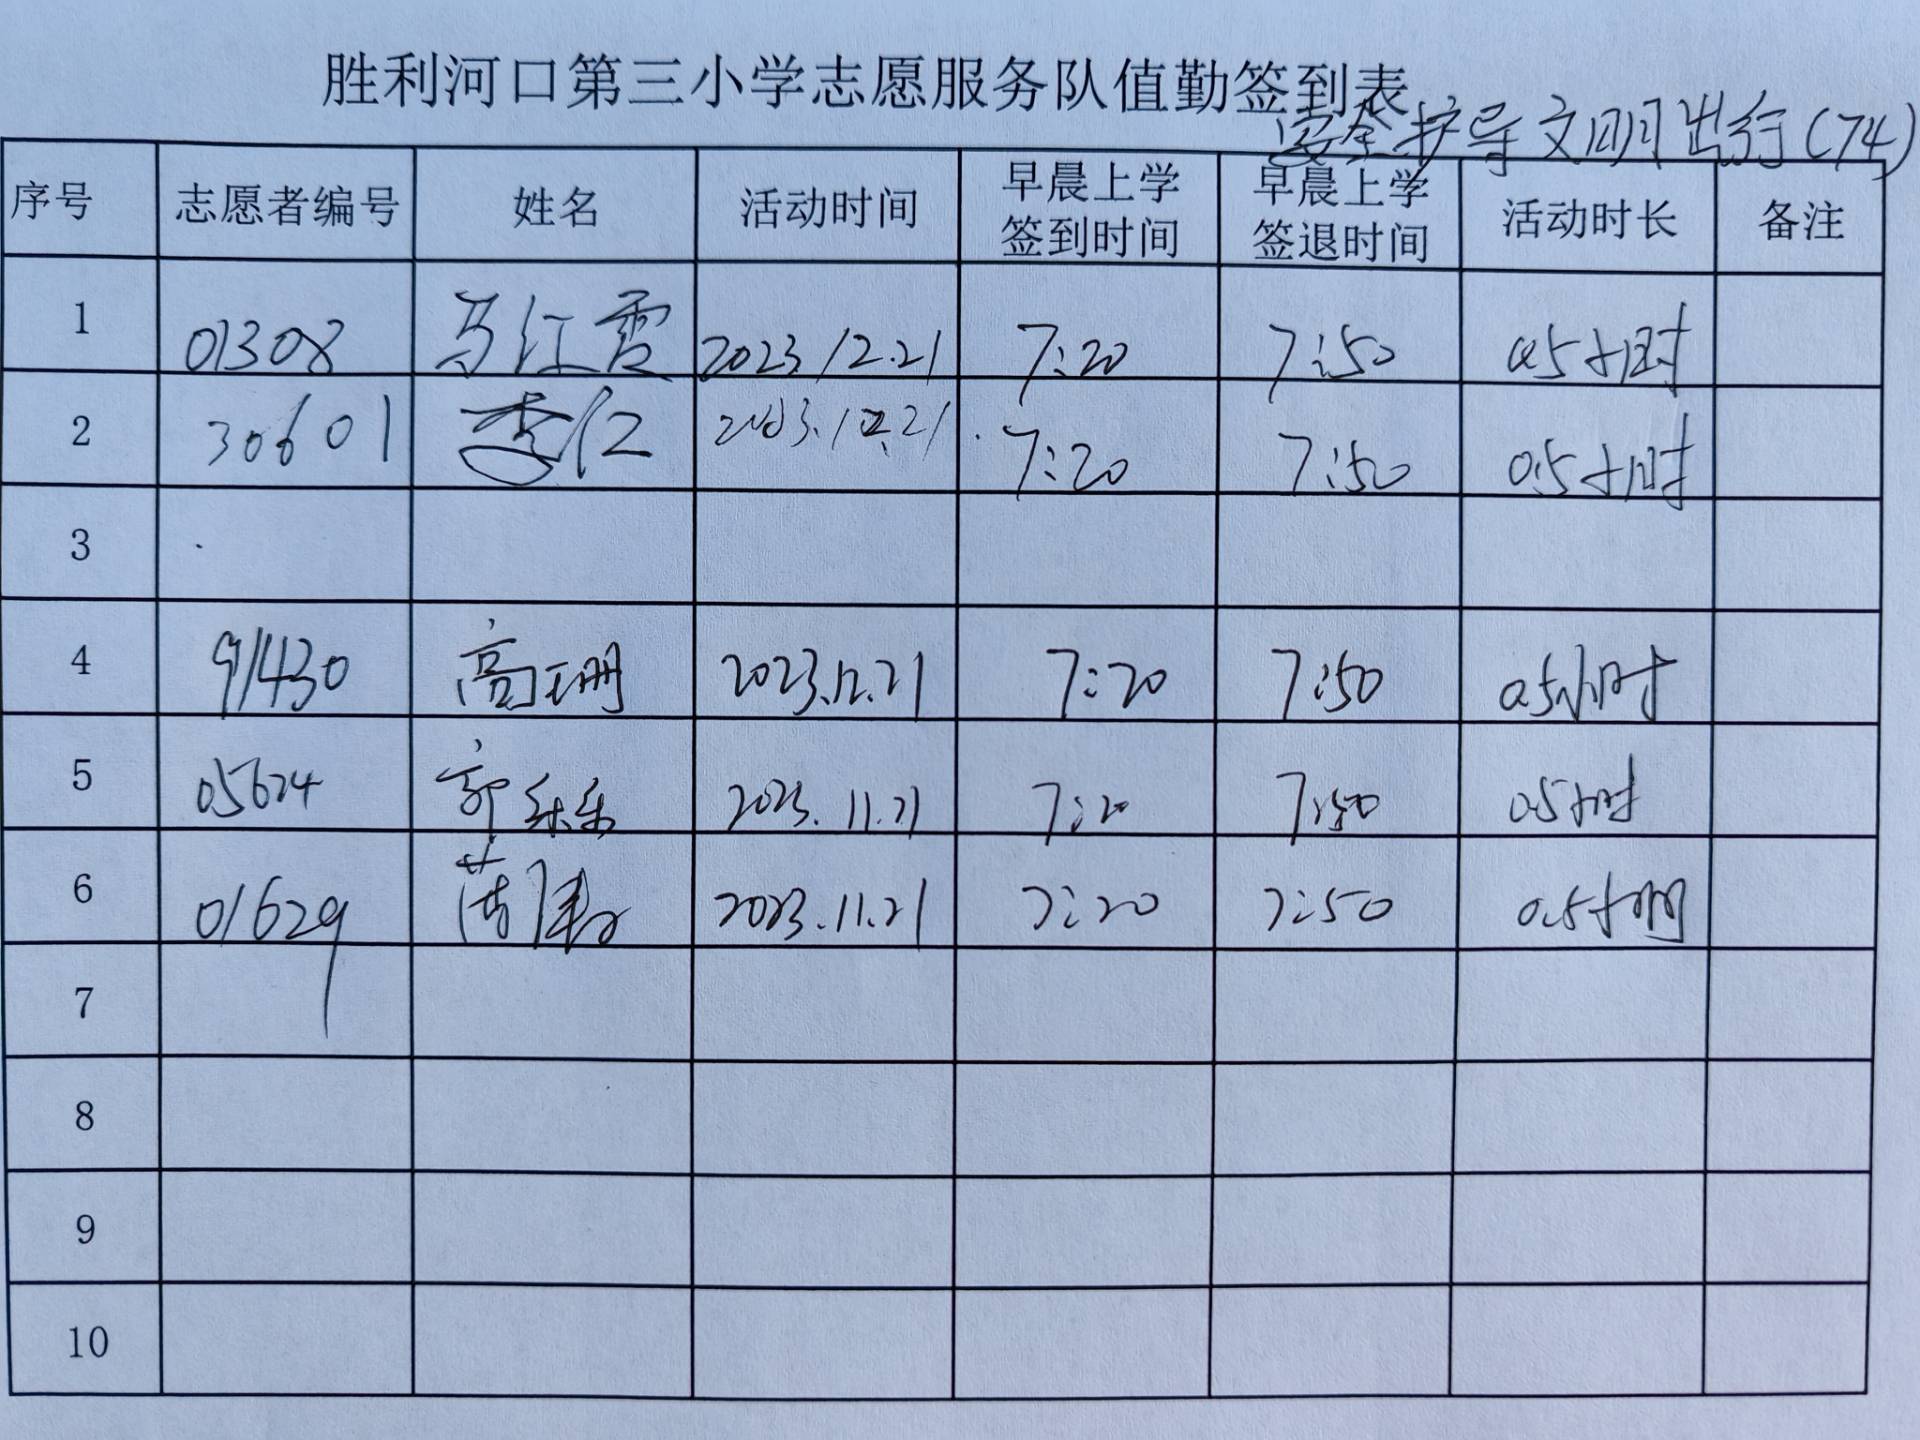 胜利河口第三小学志愿服务队值勤签到表
安全护导文明出行(74)
序号 志愿者编号 姓名 活动时间 早晨上学签到时间 早晨上学签退时间 活动时长 备注
1 01308 马红霞 2023.12.21 7:20 7:50 0.5小时
2 30601 李仁 2023.12.21. 7:20 7:50 0.5小时
3
4 91430 高珊 2023.12.21 7:20 7:50 0.5小时
5 05624 郭乐乐 2023.11.21 7:20 7:50 0.5小时
6 01629 2023.11.21 7:20 7:50 0.5小时
7
8
9
10